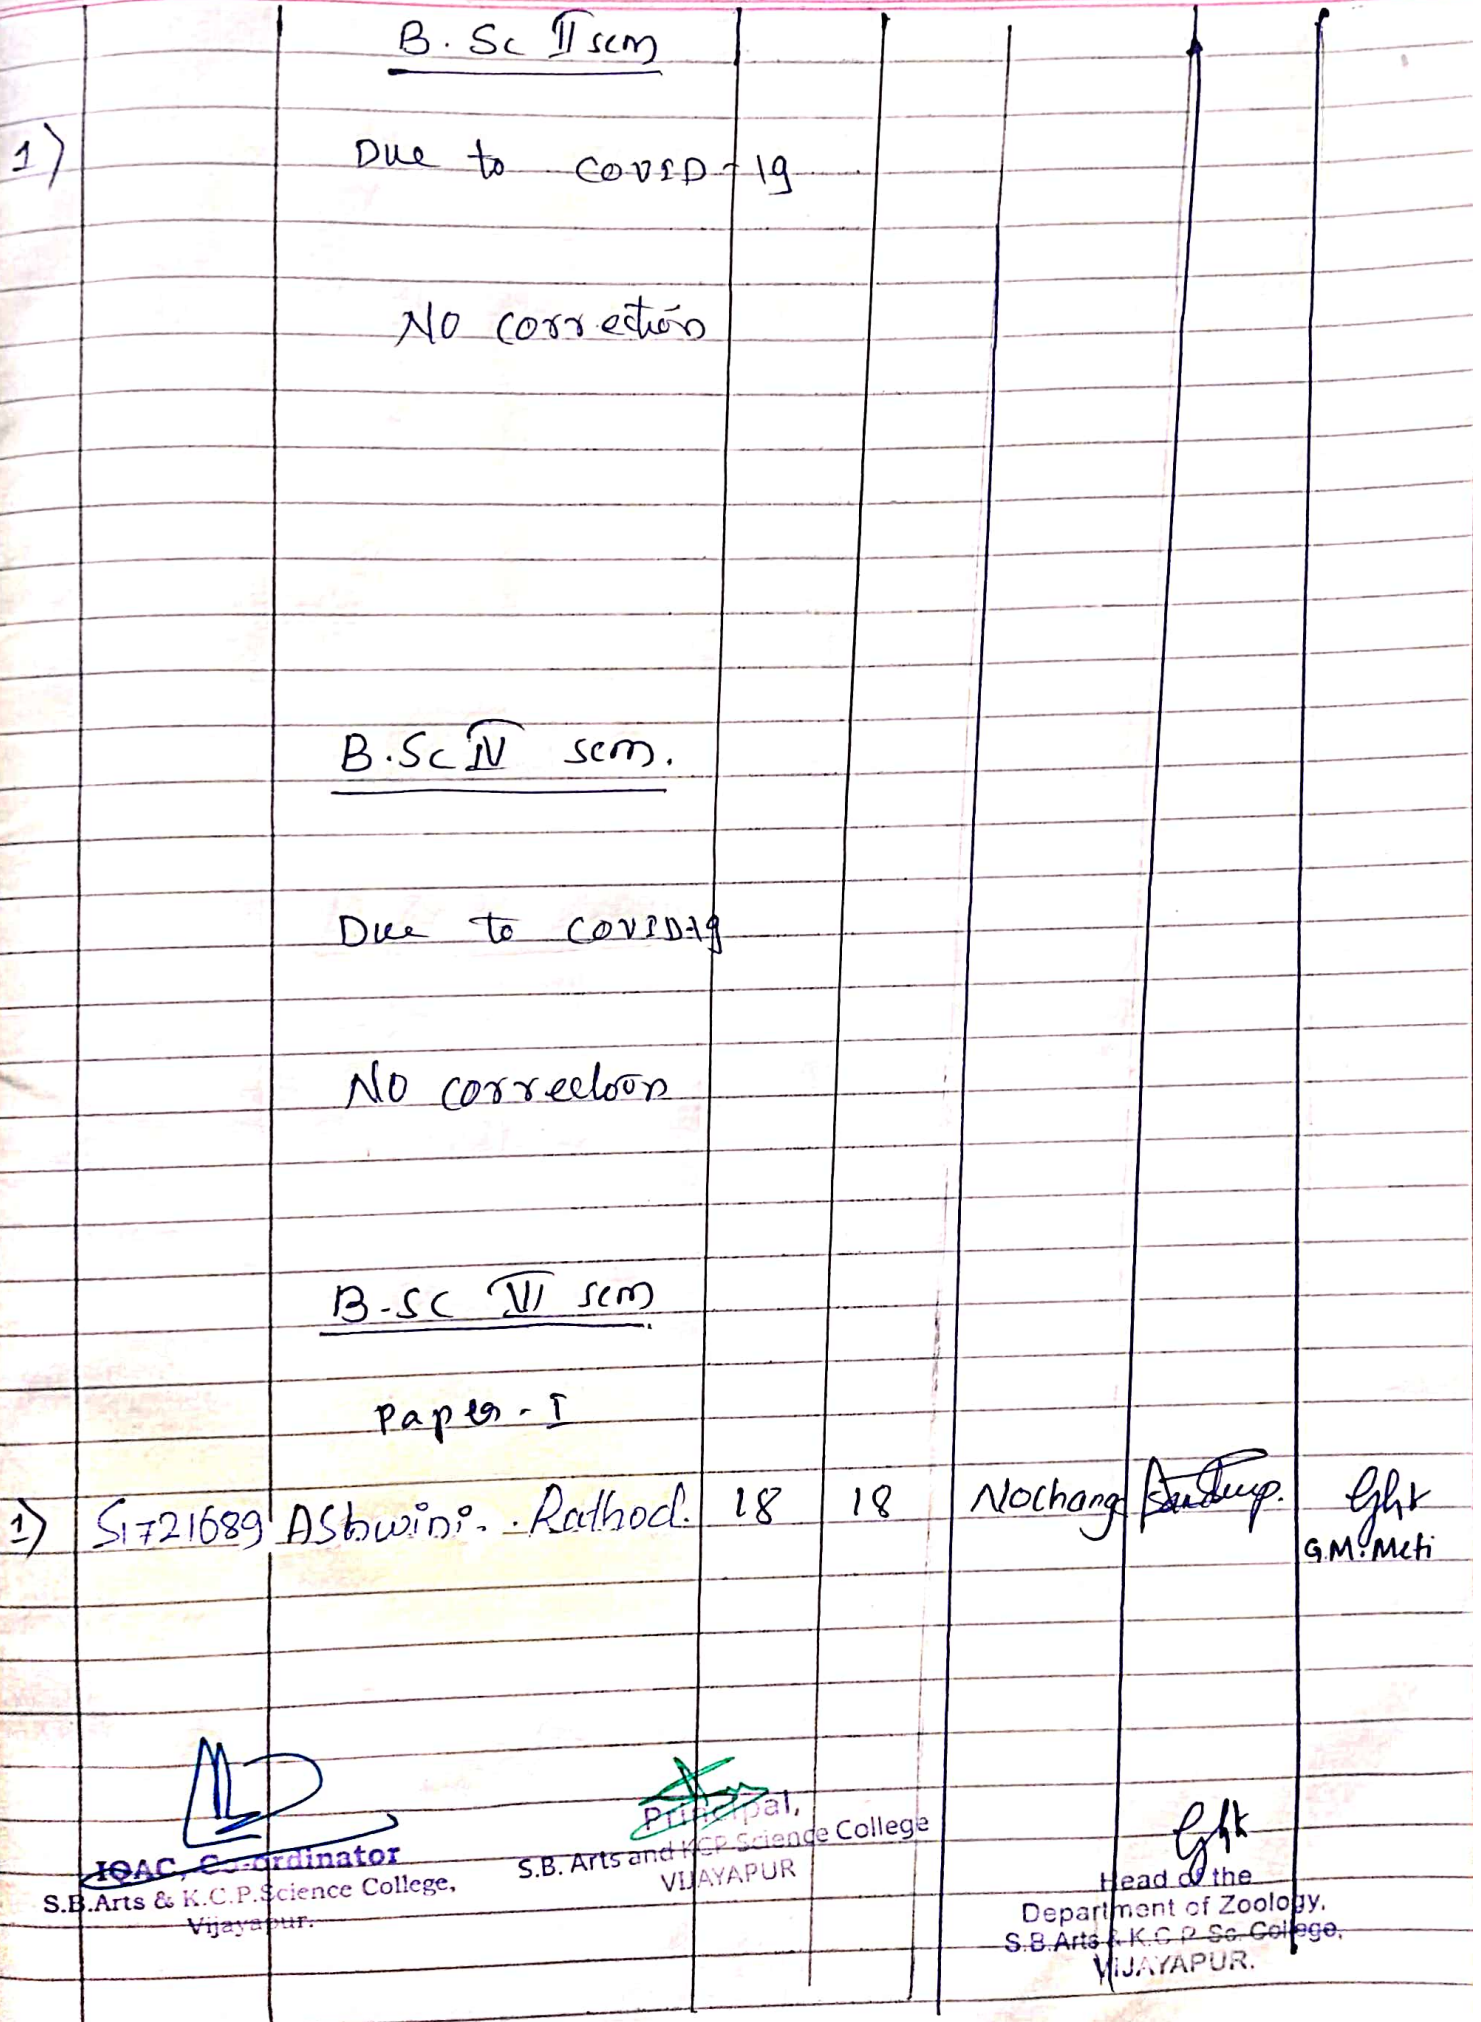 B. Sc II sem
1) Due to COVID-19
No correction
B.Sc IV sem.
Due to COVID-19
No correctoon
B-SC VI sem
Paper - I
1) S1721689 Ashwini. Rathod. 18 18 Nochang
G.M. Meti
IQAC, Co-ordinator
S.B.Arts & K.C.P.Science College,
Vijayapur.
Principal,
S.B. Arts and KCP Science College
VIJAYAPUR
Head of the
Department of Zoology,
S.B.Arts & K.C.P. Sc. College,
VIJAYAPUR.